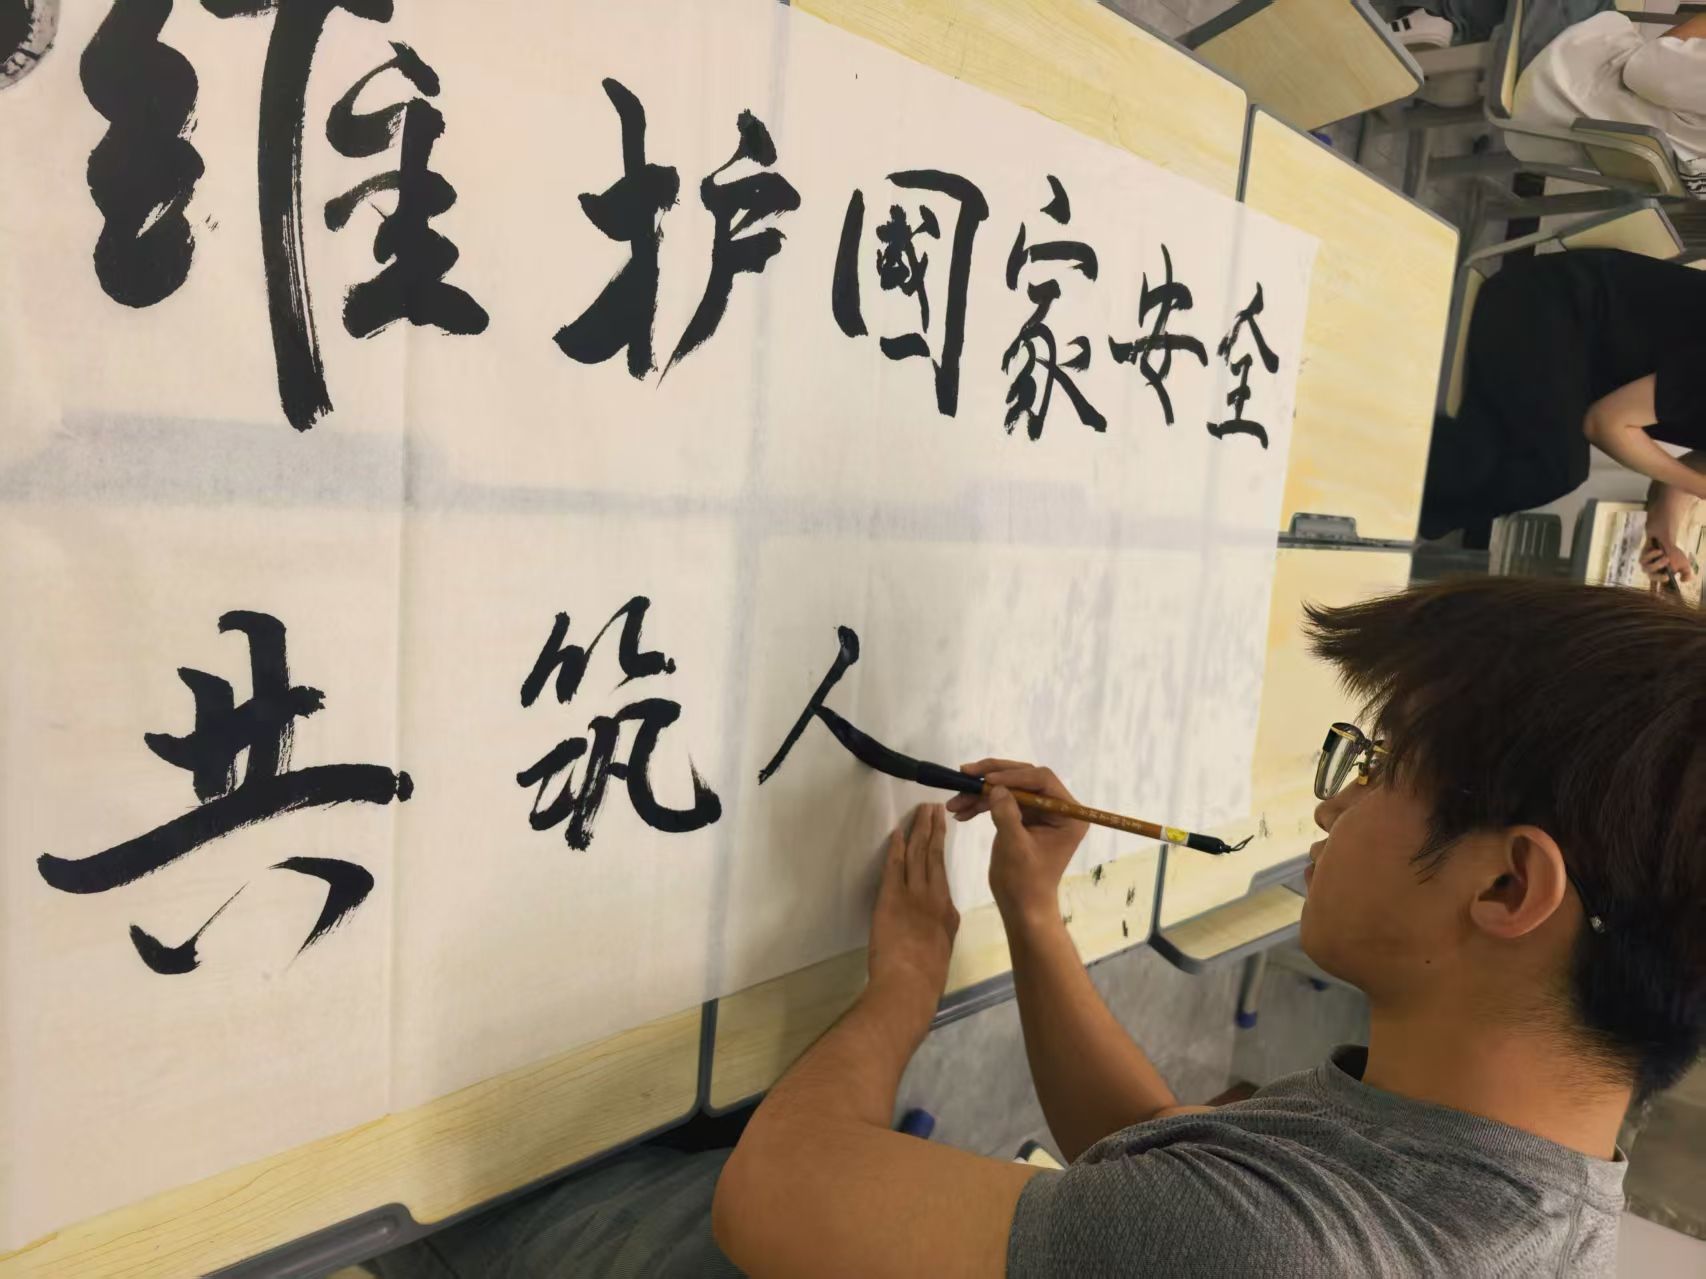 维护國家安全
共筑人